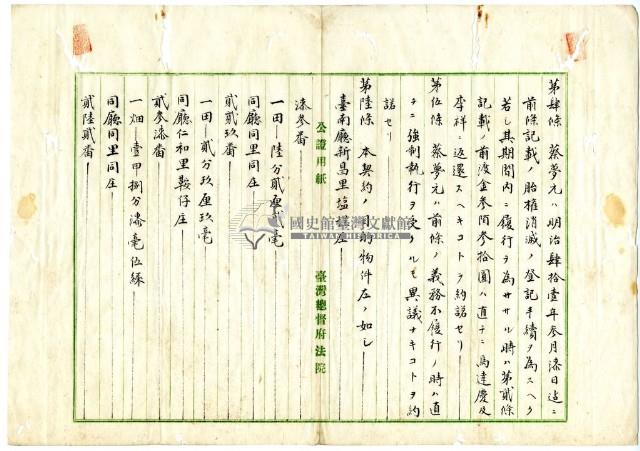 第肆條 蔡夢元ハ明治肆拾壹年參月漆日迄ニ
前條記載ノ胎権消滅ノ登記手續ヲ為スヘク
若シ其期間内ニ履行ヲ為ササル時ハ第貳條
記載ノ前渡金參百參拾圓ハ直チニ馬達慶及
李祥ニ返還スヘキコトヲ約諾セリ
第伍條 蔡夢元ハ前條ノ義務不履行ノ時ハ直
チニ強制執行ヲ受クルモ異議ナキコトヲ約
諾セリ
第陸條 本契約ノ目的物件左ノ如シ
臺南廳新昌里塩埕庄
漆參番
公證用紙 臺灣總督府法院
一田 陸分貳厘貳毫
同廳同里同庄
貳貳玖番
一田 貳分玖厘玖毫
同廳仁和里鞍仔庄
貳參漆番
一畑 壹甲捌分漆毫伍絲
同廳同里同庄
貳陸貳番
國史館臺灣文獻館
TAIWAN HISTORICA